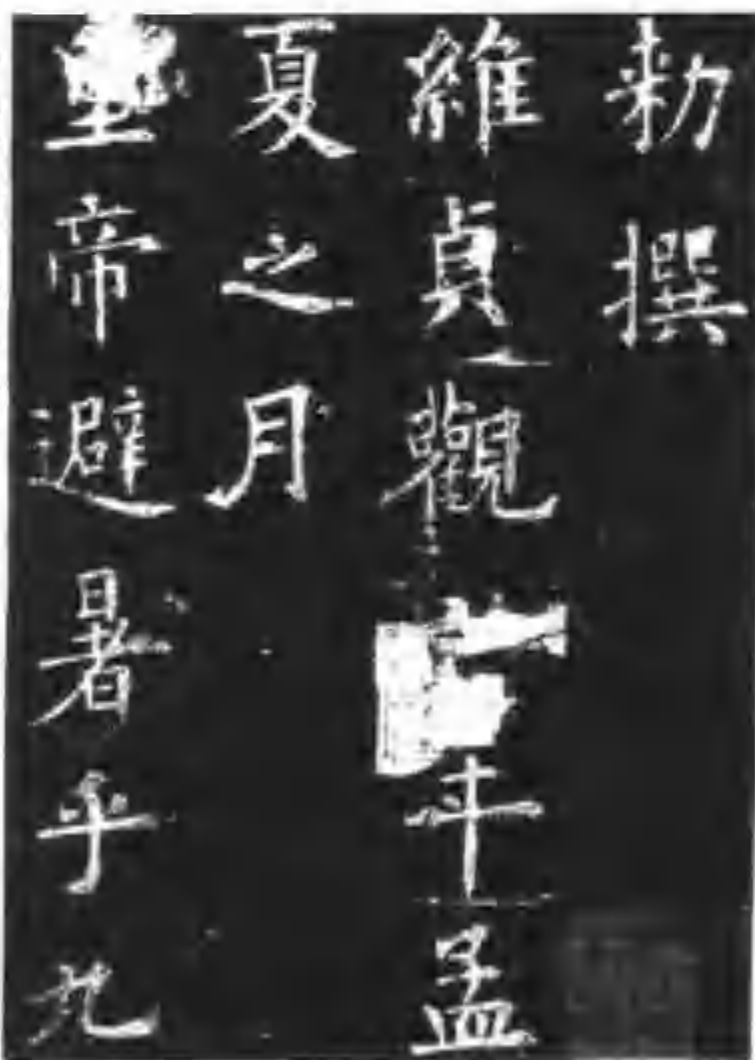 勑撰
維貞觀年孟
夏之月
帝避暑乎九